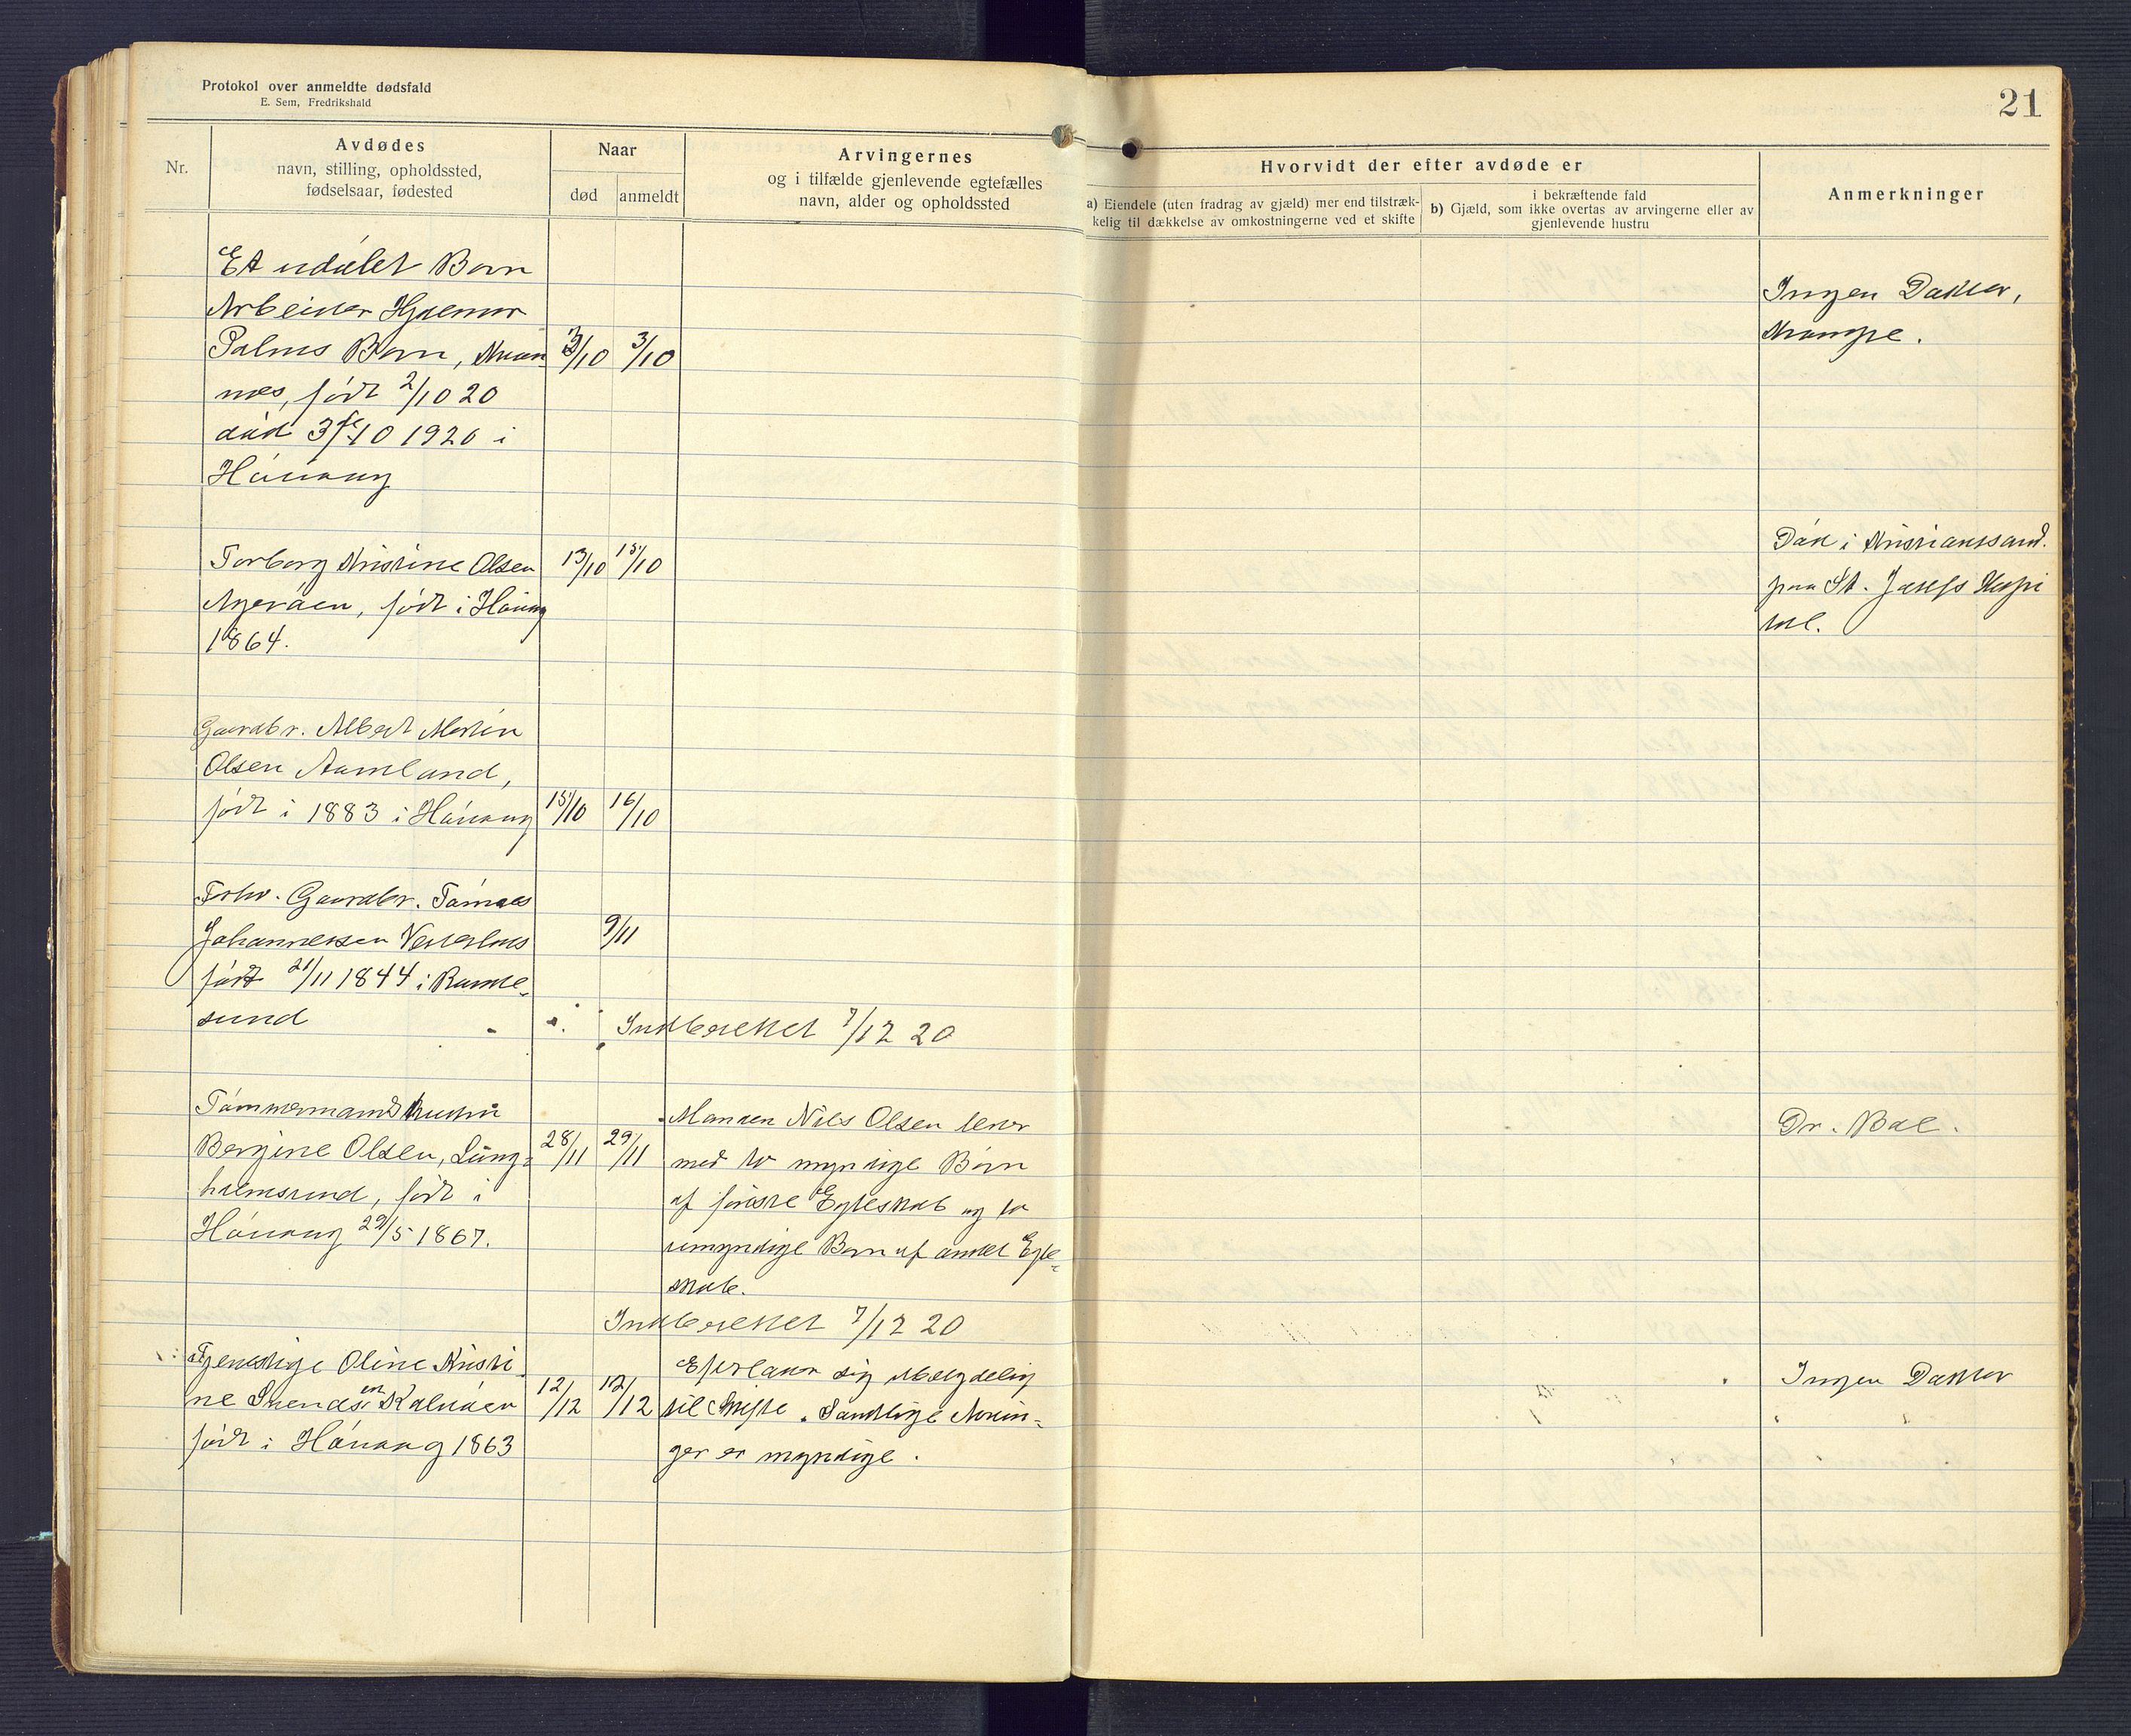 Protokol over anmeldte dødsfald
E. Sem, Fredrikshald
21
Nr.
Avdødes
navn, stilling, opholdssted,
fødselsaar, fødested
Naar
død
anmeldt
Arvingernes
og i tilfælde gjenlevende egtefælles
navn, alder og opholdssted
Hvorvidt der efter avdøde er
a) Eiendele (uten fradrag av gjæld) mer end tilstræk-
kelig til dækkelse av omkostningerne ved et skifte
i bekræftende fald
b) Gjæld, som ikke overtas av arvingerne eller av
gjenlevende hustru
Anmerkninger
Et udøbt Barn
Arbeider Hjalmar
Palms Barn,
3/10 3/10
nes, født 2/10 20
død 3/10 1920 i
Høvaag
Ingen Doktor,
Krampe.
Torborg Kristine Olsen
13/10 15/10
Agerøen, født i Høvaag
1864.
Død i Kristianssand
paa St. Josefs Hospi
tal.
Gaardbr. Albert Martin
Olsen Aamland,
født i 1883 i Høvaag
15/10 16/10
Forhv. Gaardbr. Tømmes
Johannessen
9/11
født 21/11 1844 i Randø-
sund
Indberettet 7/12 20
Tømmermandshustru
Bergine Olsen, Ling-
28/11 29/11
holmsund, født i
Høvaag 29/5 1867.
Manden Nils Olsen lever
med to myndige Børn
af første Egteskab og to
umyndige Børn af andet Egte-
skab.
Dr. Boe.
Indberettet 7/12 20
Tjenestpige Oline Kristi
ne Svendsen Kalvøen
12/12 12/12
født i Høvaag 1863
Efterlader sig ubetydelig
til Skifte. Samtlige Arvin-
ger er myndige.
Ingen Doktor